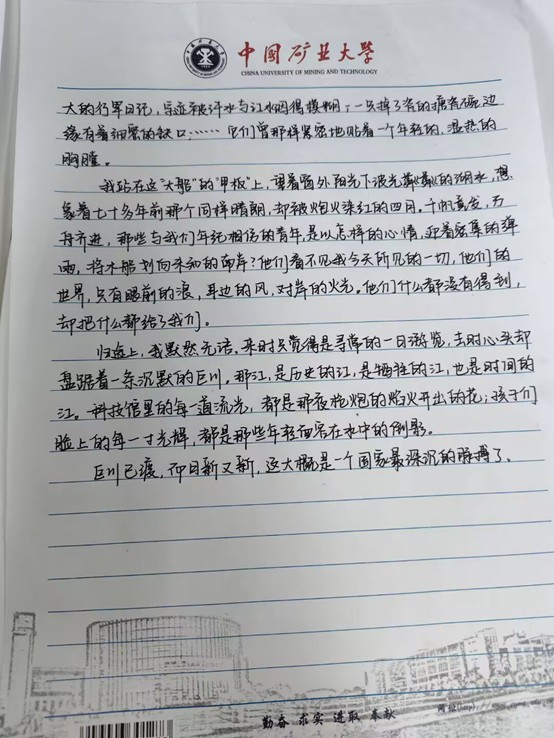 中国矿业大学
CHINA UNIVERSITY OF MINING AND TECHNOLOGY
大的行军日记，字迹被汗水与江水洇得模糊；一只掉了瓷的搪瓷碗，边
缘有着细密的缺口……它们曾那样紧密地贴着一个年轻的、温热的
胸膛。
我站在这“大船”的“甲板”上，望着窗外阳光下波光粼粼的湖水，想
象着七十多年前那个同样晴朗，却被炮火染红的四月。千帆竞发，万
舟齐进，那些与我们年纪相仿的青年，是以怎样的心情，迎着密集的弹
雨，将木船划向未知的南岸？他们看不见我今天所见的一切，他们的
世界，只有眼前的浪，耳边的风，对岸的火光。他们什么都没有得到，
却把什么都给了我们。
归途上，我默然无语。来时只觉得是寻常的一日游览，去时心头却
盘踞着一条沉默的巨川。那江，是历史的江，是牺牲的江，也是时间的
江。科技馆里的每一道流光，都是那夜枪炮的焰火开出的花；孩子们
脸上的每一寸光辉，都是那些年轻面容在水中的倒影。
巨川已渡，仰日新又新，这大概是一个国家最深沉的脉搏了。
勤奋 求实 进取 奉献